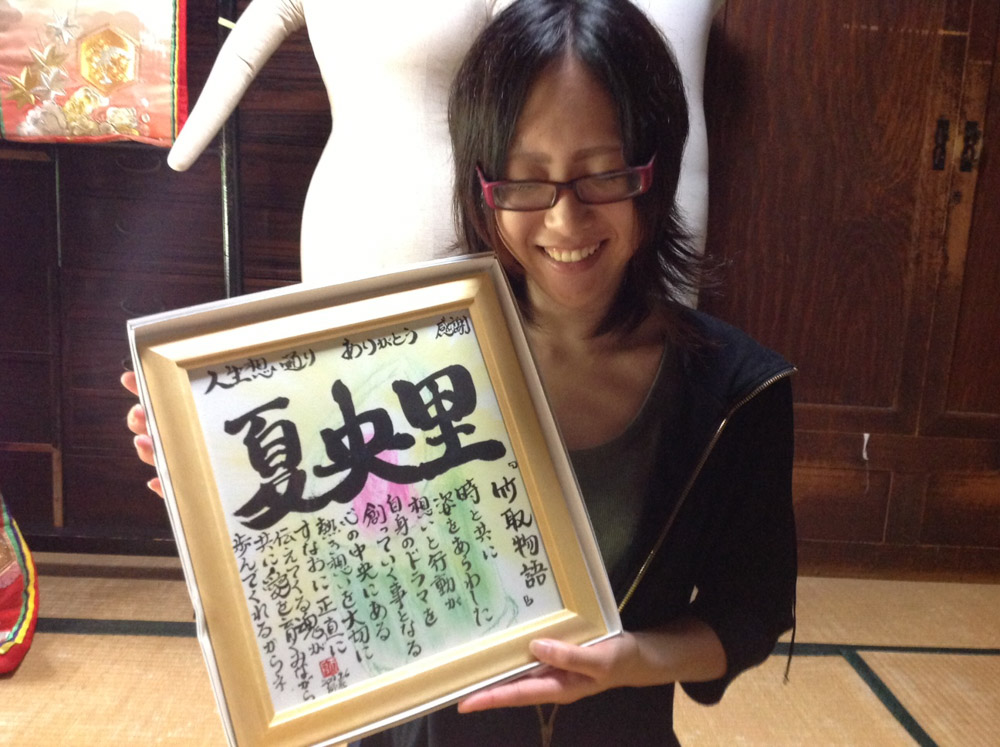 人生想い通り ありがとう 感謝
夏央里
『竹取物語』
時と共に
姿をあらわした
想いと行動が
自身のドラマを
創っていく事となる
心の中央にある
熱き想いを大切に
すなおに正直に
伝えてくる魂が
共に愛を育みながら
歩んでくれるからネ